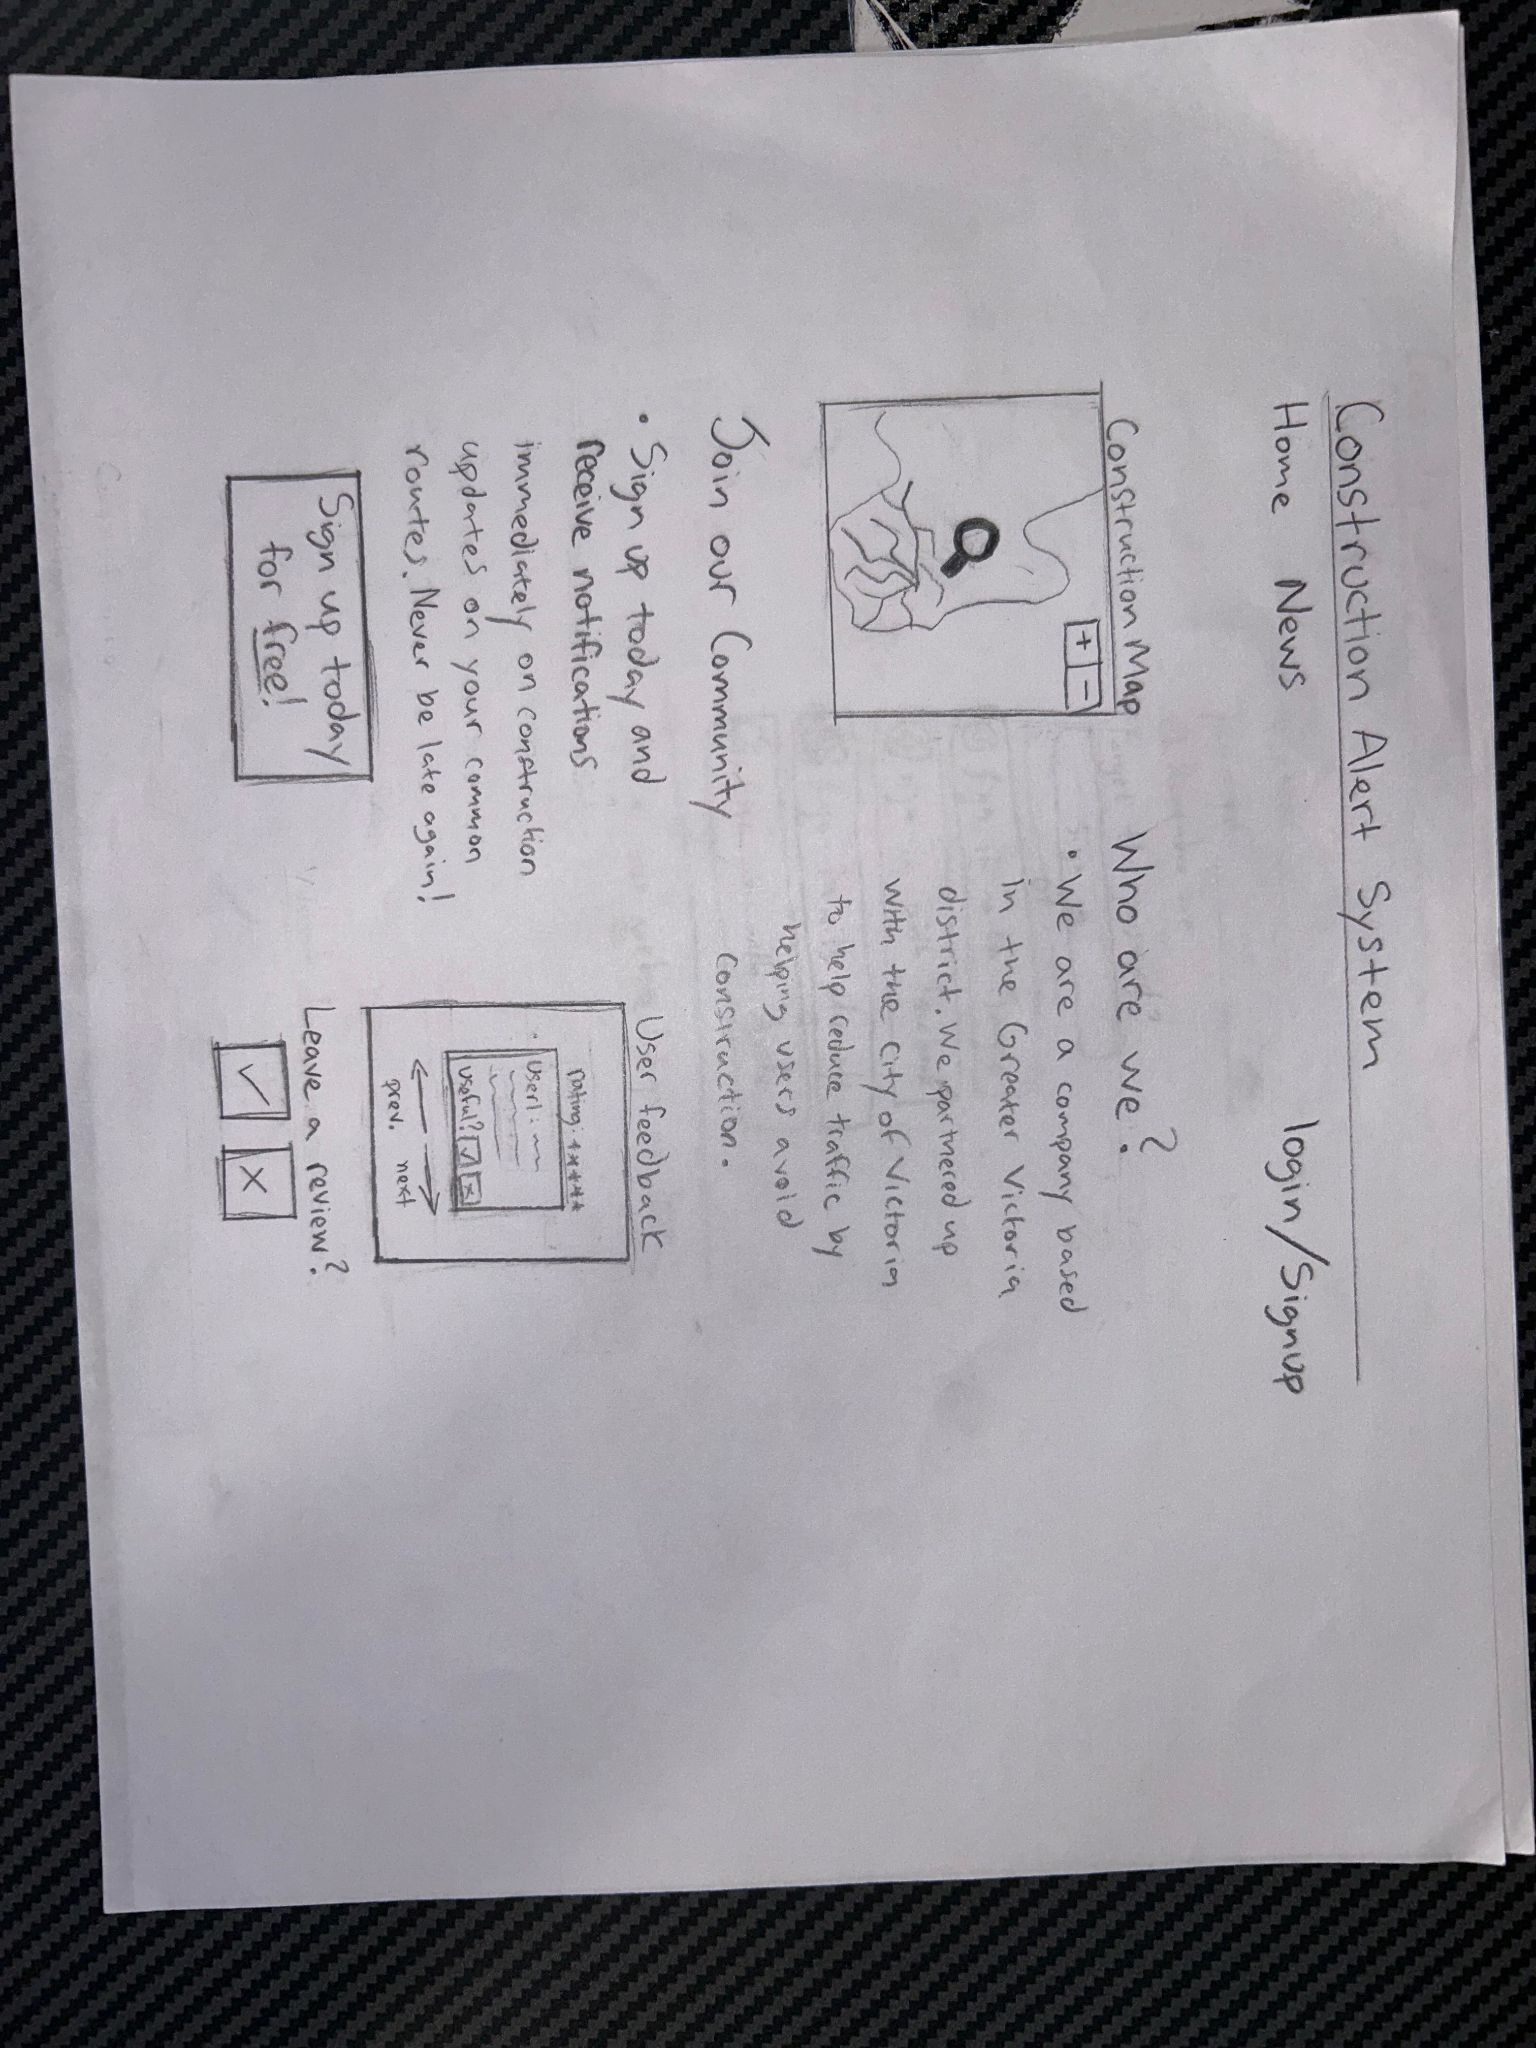 Construction Alert System
Home News login/Signup
Construction Map
+ -
Who are we?
• We are a company based
in the Greater Victoria
district. We partnered up
with the city of Victoria
to help reduce traffic by
helping users avoid
construction.
Join our Community
• Sign up today and
receive notifications
immediately on construction
updates on your common
routes. Never be late again!
Sign up today
for free!
User feedback
rating:
User1:
useful? ✓ x
prev. next
Leave a review?
✓ X